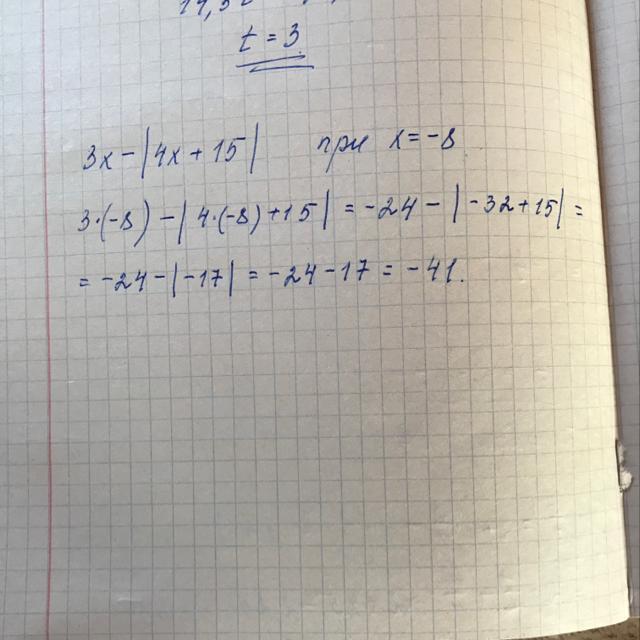 t = 3
3x - |4x + 15| при x = -8
3·(-8) - |4·(-8) + 15| = -24 - |-32 + 15| =
= -24 - |-17| = -24 - 17 = -41.